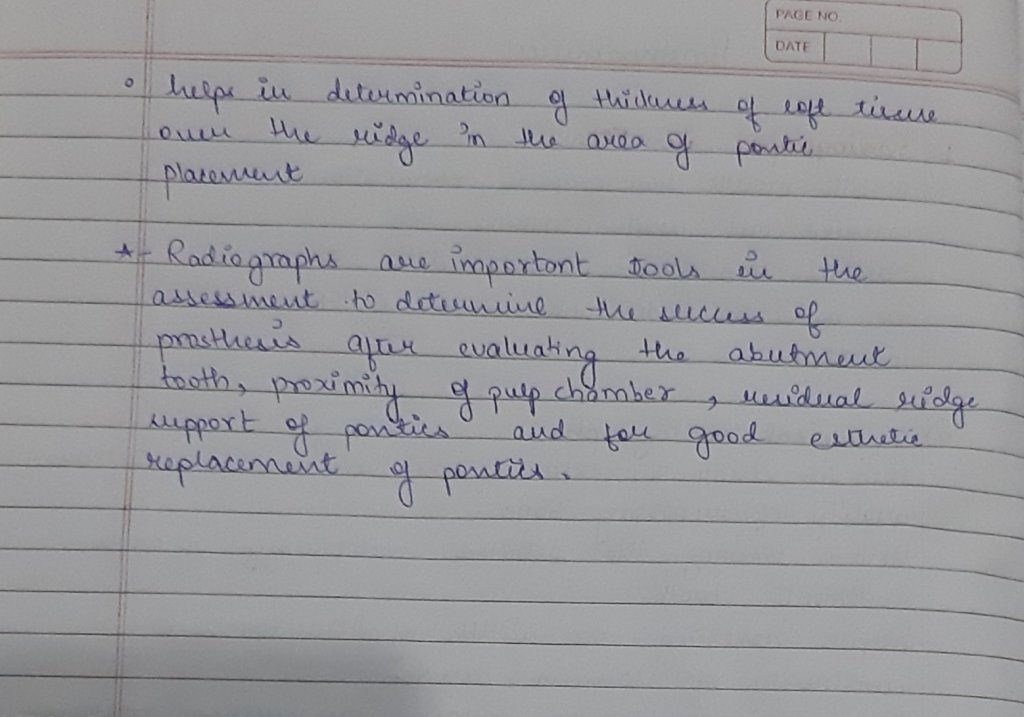 PAGE NO.
DATE
° helps in determination of thickness of soft tissue
over the ridge in the area of pontic
placement
* - Radiographs are important tools in the
assessment to determine the success of
prosthesis after evaluating the abutment
tooth, proximity of pulp chamber, residual ridge
support of pontics and for good esthetic
replacement of pontics.